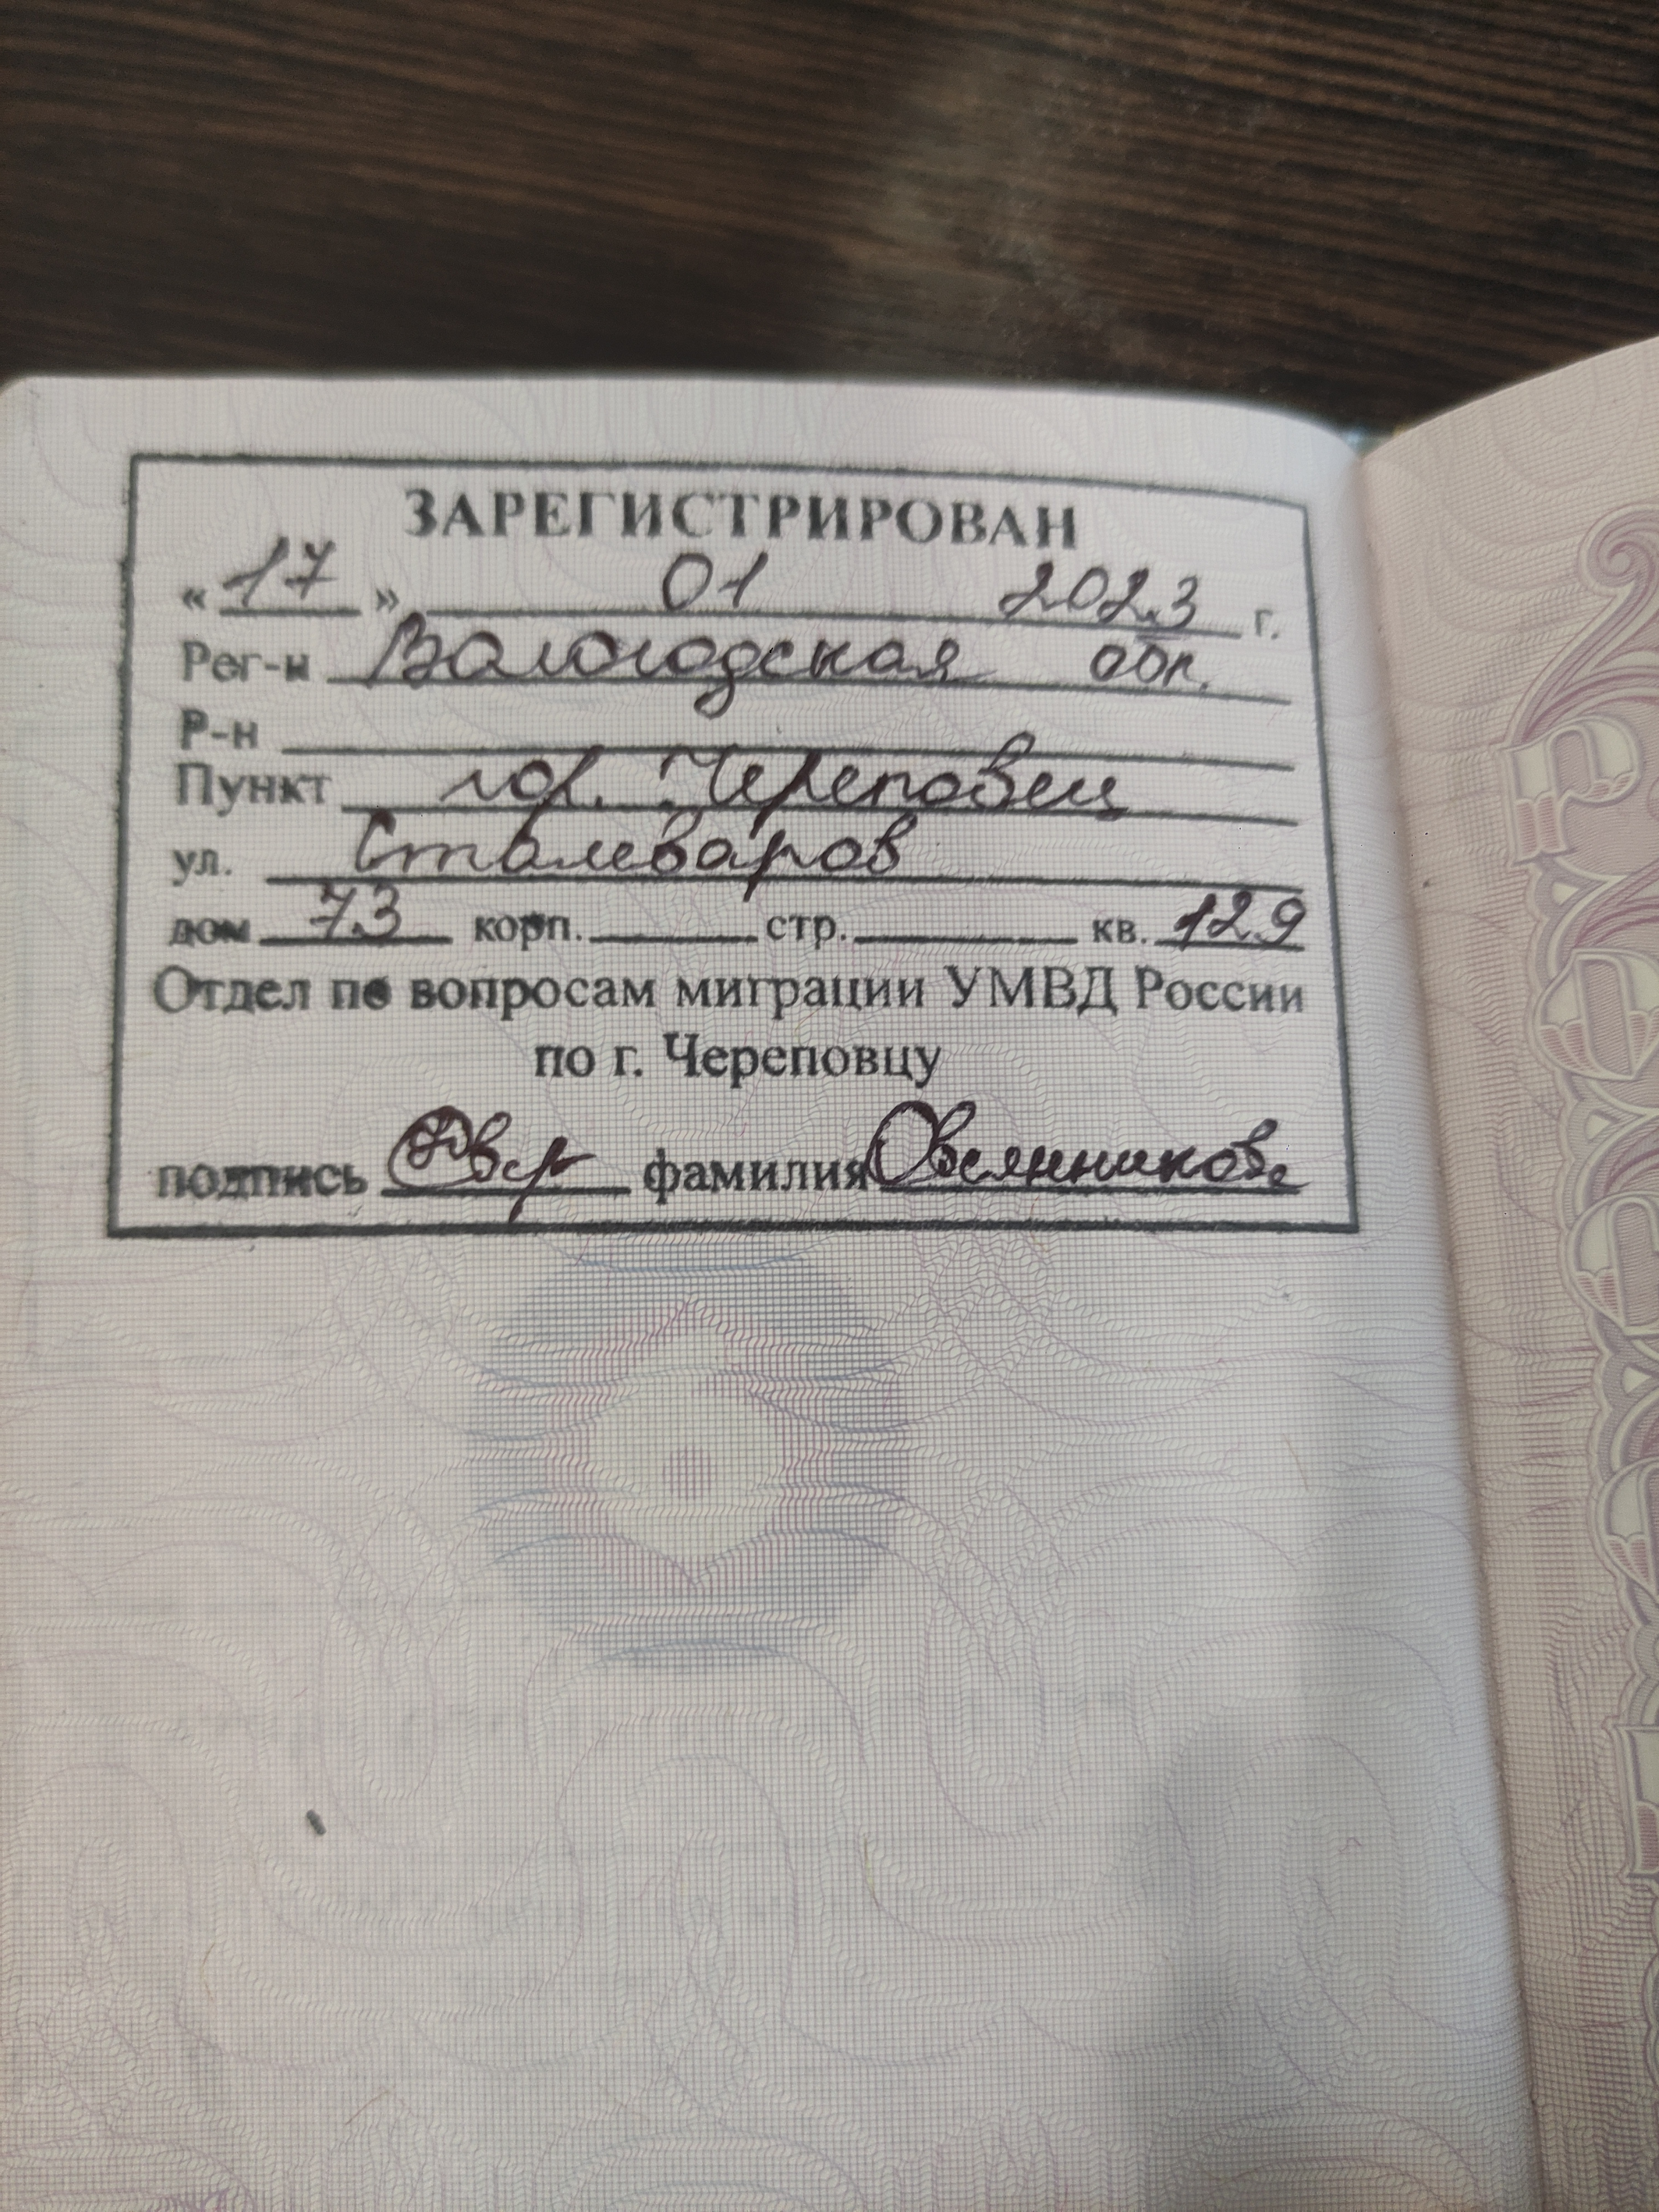 ЗАРЕГИСТРИРОВАН
« 17 » 01 2023 г.
Рег-н Вологодская обл.
Р-н
Пункт гор. Череповец
ул. Сталеваров
дом 73 корп. стр. кв. 129
Отдел по вопросам миграции УМВД России
по г. Череповцу
подпись фамилия Овсянникова